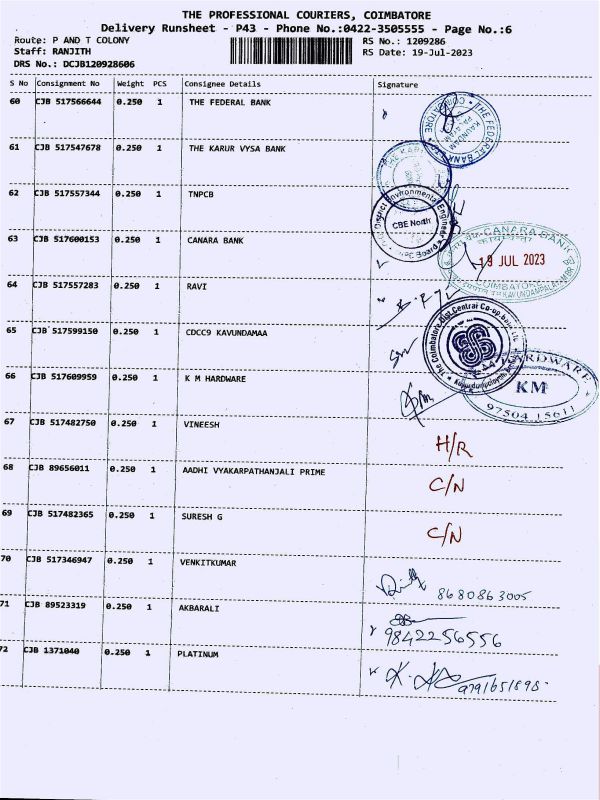 THE PROFESSIONAL COURIERS, COIMBATORE
Delivery Runsheet - P43 - Phone No.:0422-3505555 - Page No.:6
Route: P AND T COLONY RS No.: 1209286
Staff: RANJITH RS Date: 19-Jul-2023
DRS No.: DCJB120928606
S No Consignment No Weight PCS Consignee Details Signature
60 CJB 517566644 0.250 1 THE FEDERAL BANK
THE FEDERAL BANK
COIMBATORE
61 CJB 517547678 0.250 1 THE KARUR VYSA BANK
62 CJB 517557344 0.250 1 TNPCB
District Environmental Engineer
CBE North
Board
63 CJB 517600153 0.250 1 CANARA BANK
CANARA BANK
19 JUL 2023
COIMBATORE
64 CJB 517557283 1 RAVI
0.250
65 CJB 517599150 0.250 1 CDCC9 KAVUNDAMAA
The Coimbatore Dist.Central Co-op.bank
66 CJB 517609959 0.250 1 K M HARDWARE
HARDWARE
KM
97504 15611
67 CJB 517482750 0.250 1 VINEESH H/R
68 CJB 89656011 0.250 1 AADHI VYAKARPATHANJALI PRIME C/N
69 CJB 517482365 0.250 1 SURESH G C/N
70 CJB 517346947 0.250 1 VENKITKUMAR 8680863005
71 CJB 89523319 0.250 1 AKBARALI 9842256556
72 CJB 1371040 0.250 1 PLATINUM 9791651898